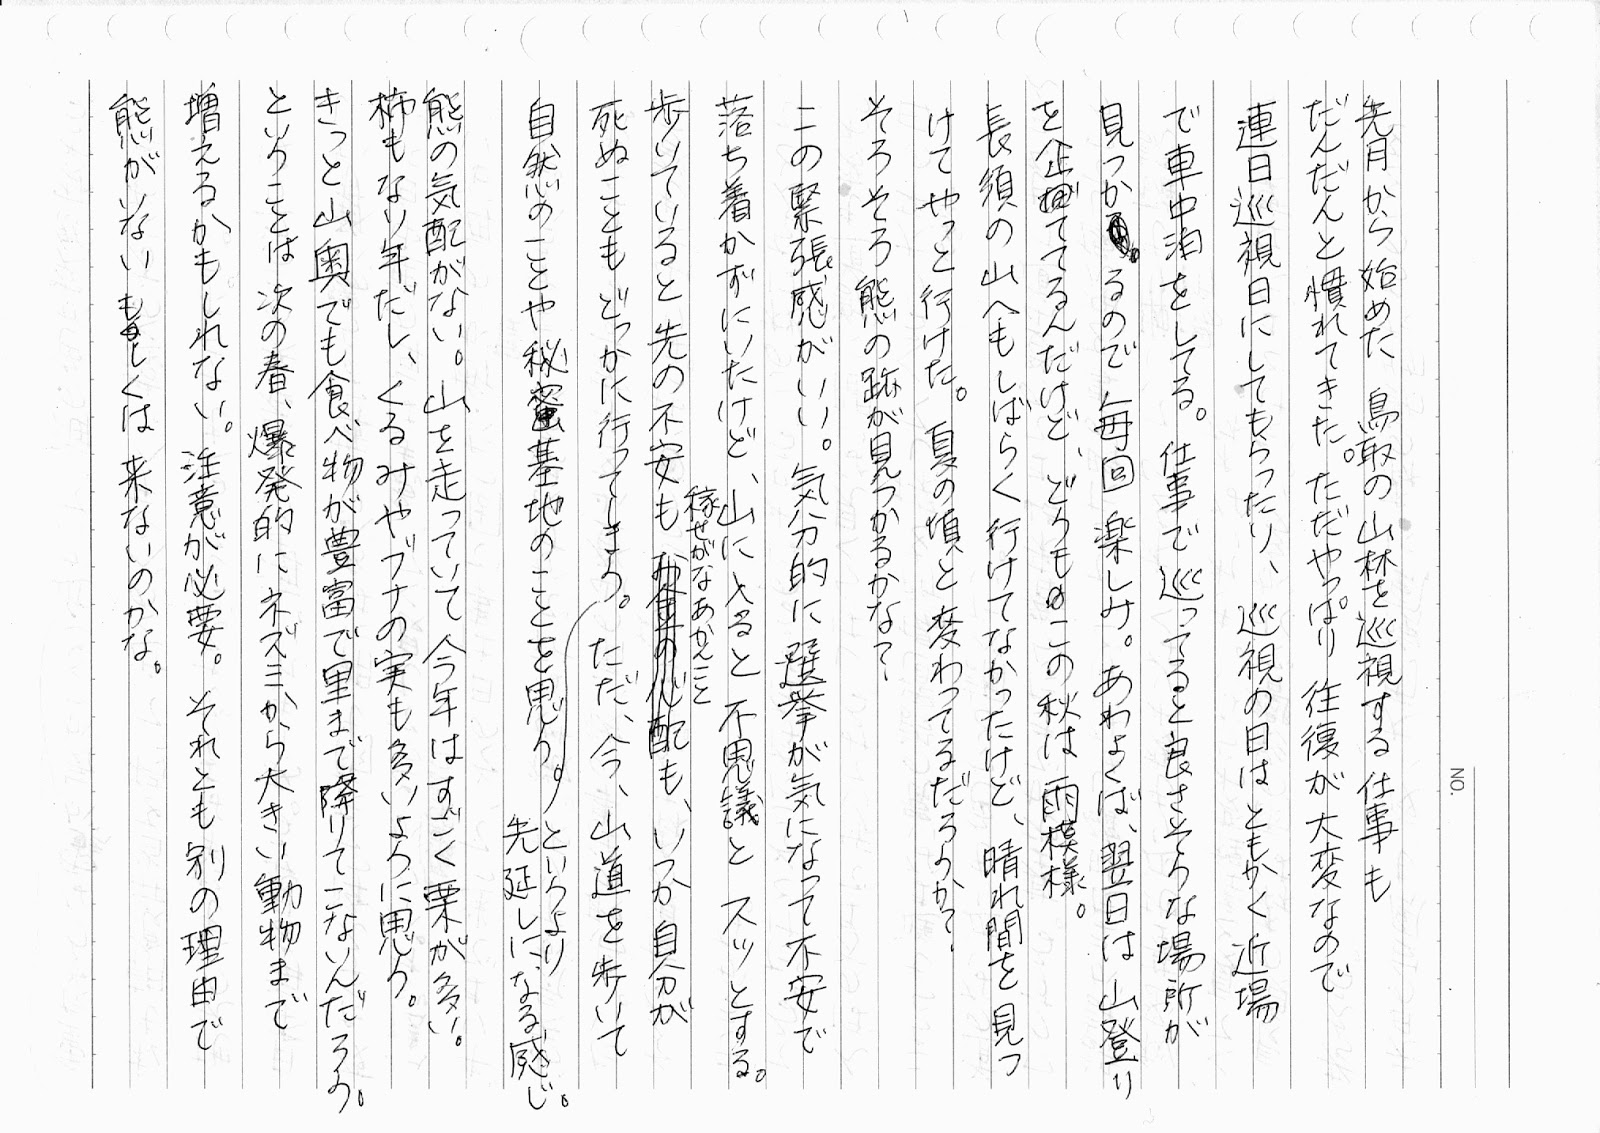 NO.
先月から始めた 鳥取の山林を巡視する仕事も
だんだんと慣れてきた。ただやっぱり 往復が大変なので
連日巡視日にしてもらったり、巡視の日はともかく 近場
で車中泊をしてる。仕事で巡ってると良さそうな場所が
見つかるので 毎回 楽しみ。あわよくば、翌日は 山登り
を企ててるんだけど、どうもこの秋は 雨模様。
長須の山へもしばらく行けてなかったけど、晴れ間を見つ
けてやっと行けた。夏の頃と変わってるだろうか?
そろそろ熊の跡が見つかるかな?
この緊張感がいい。気分的に選挙が気になって不安で
落ち着かずにいたけど、山に入ると不思議と スッとする。
歩いていると 先の不安も 稼せがなあかんこと も、いつか 自分が
死ぬことも どっかに行ってしまう。ただ、今、山道を歩いて
自然のことや秘密基地のことを思う。というより
先延しになる感じ。
熊の気配がない。山を走っていて 今年はすごく栗が多い。
柿もなり年だし、くるみやブナの実も多いように思う。
きっと山奥でも食べ物が豊富で里まで降りてこないんだろう。
ということは 次の春、爆発的にネズミから大きい動物まで
増えるかもしれない。注意が必要。それとも 別の理由で
熊がいない もしくは 来ないのかな。